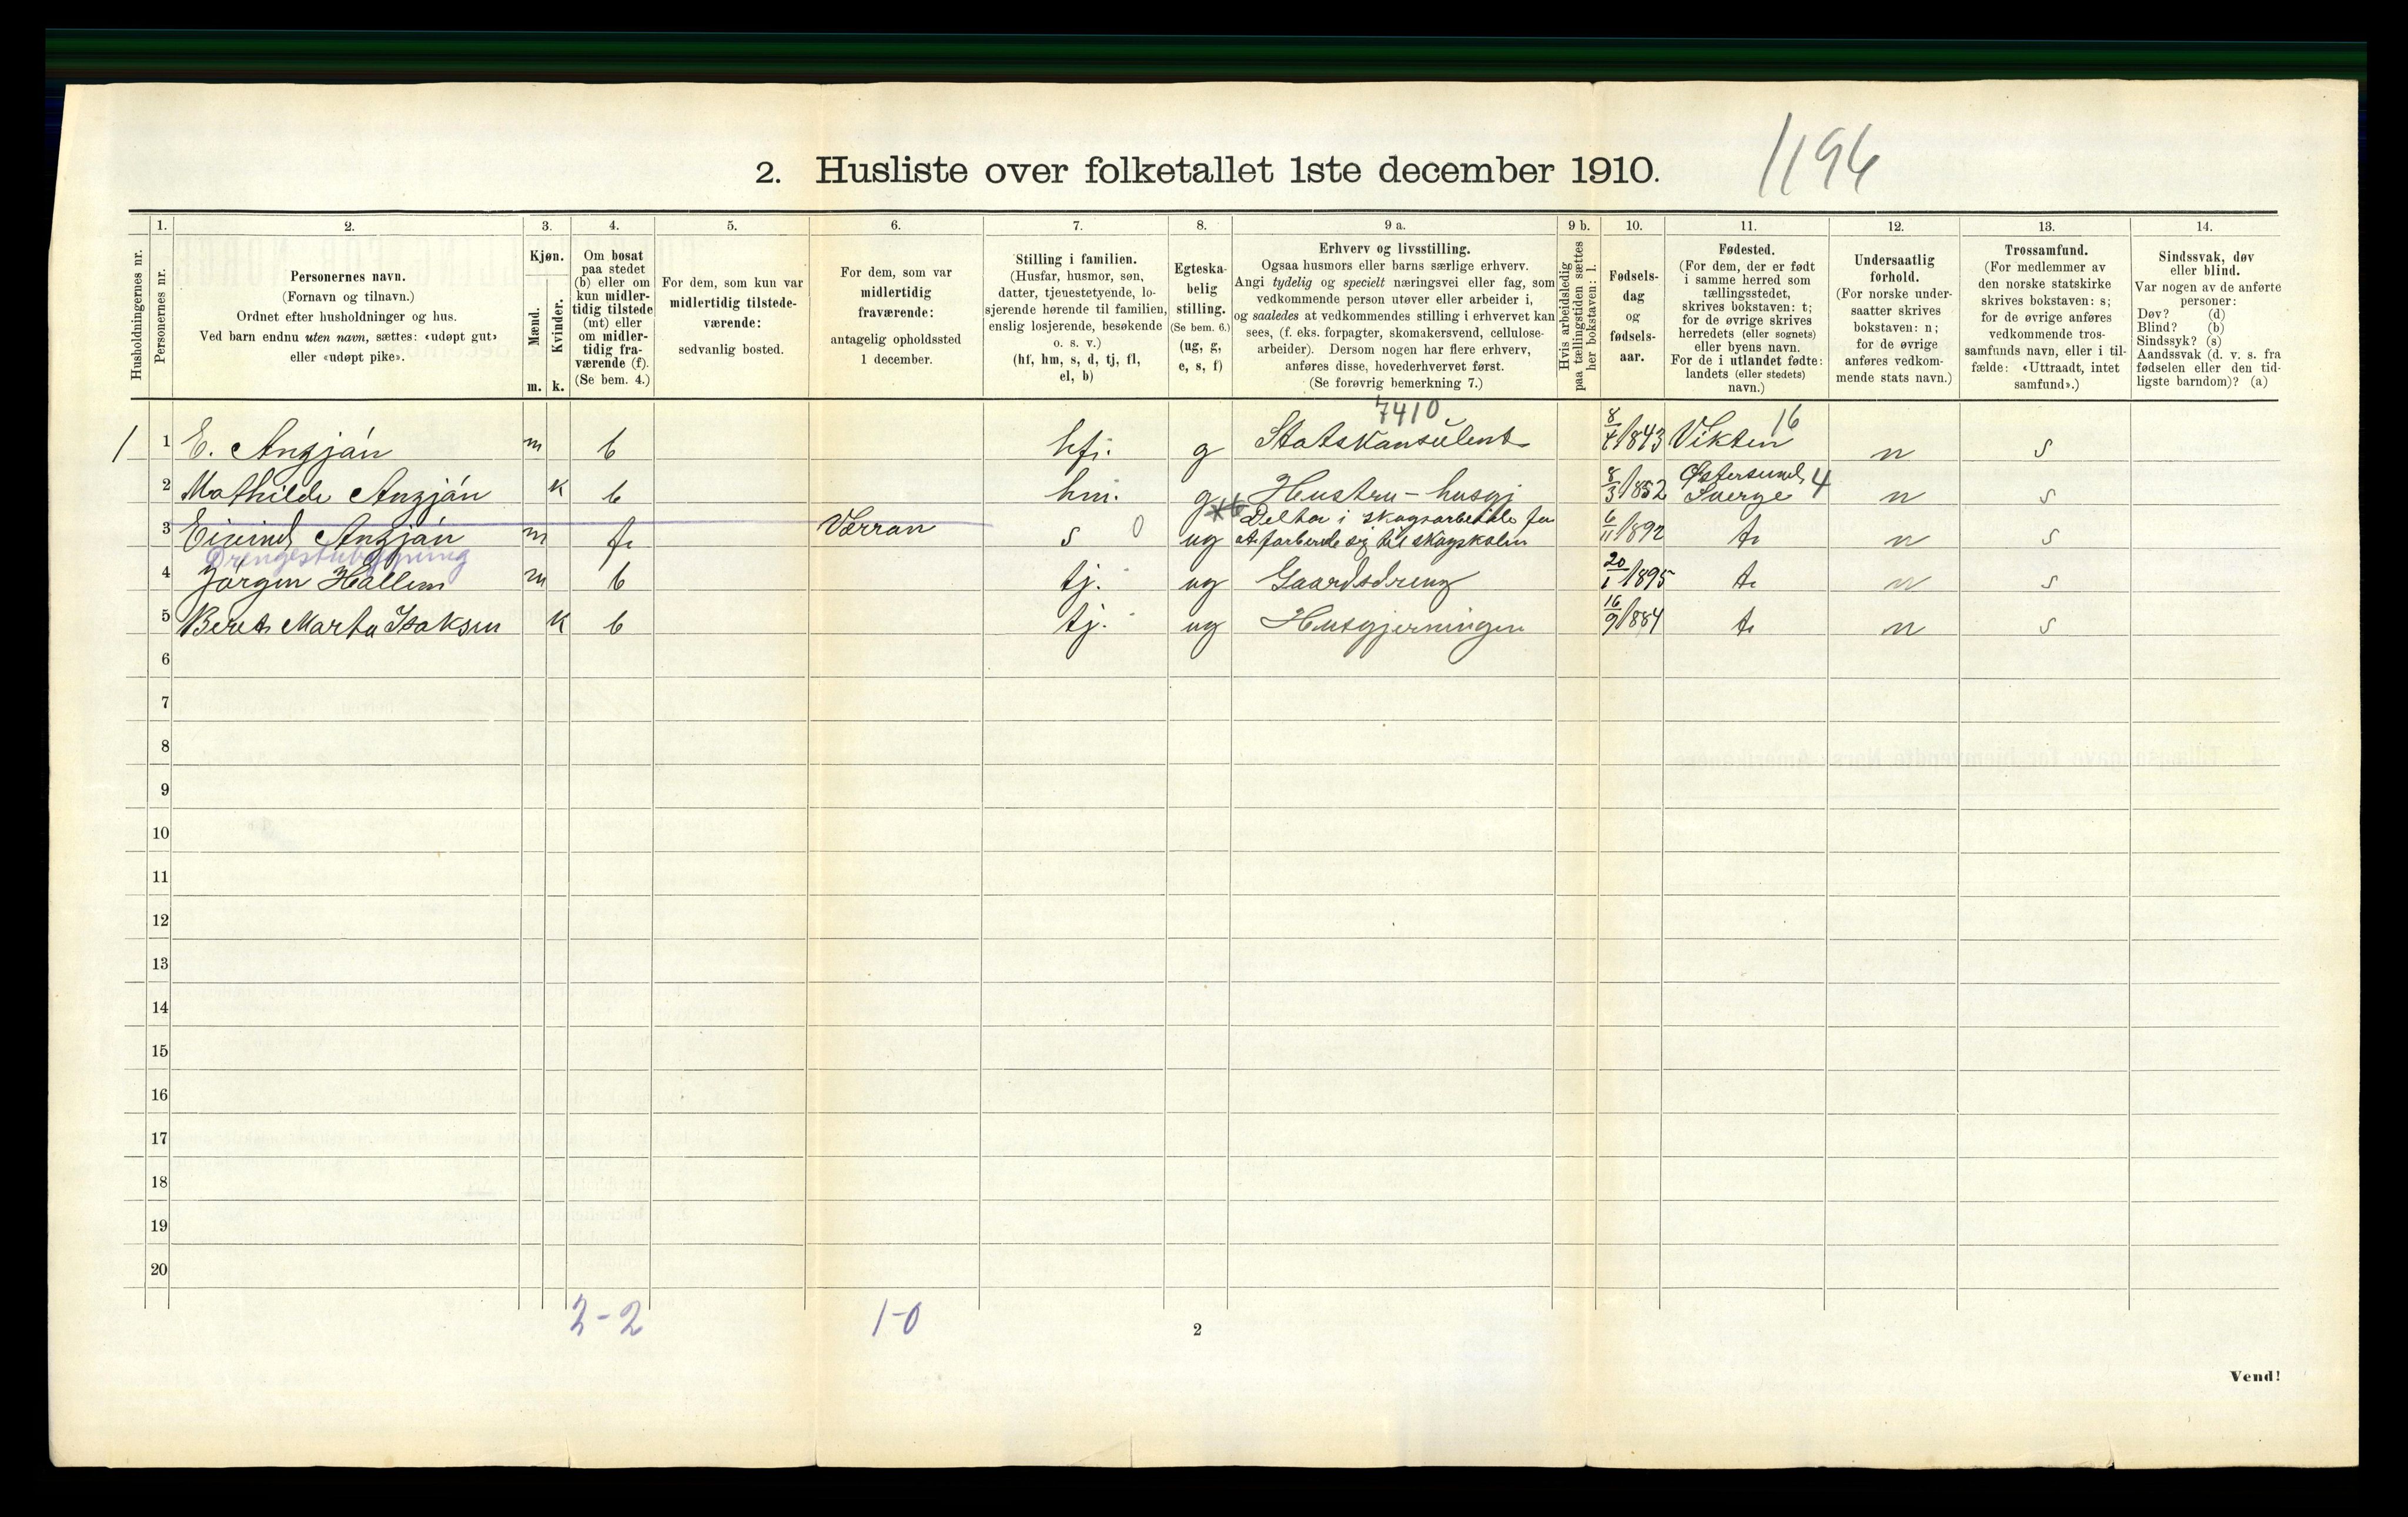 2. Husliste over folketallet 1ste december 1910.
1196
Husholdningernes nr.
1. Personernes nr.
2. Personernes navn.
(Fornavn og tilnavn.)
Ordnet efter husholdninger og hus.
Ved barn endnu uten navn, sættes: «udøpt gut»
eller «udøpt pike».
3. Kjøn.
Mænd. m.
Kvinder. k.
4. Om bosat
paa stedet
(b) eller om
kun midler-
tidig tilstede
(mt) eller
om midler-
tidig fra-
værende (f).
(Se bem. 4.)
5. For dem, som kun var
midlertidig tilstede-
værende:
sedvanlig bosted.
6. For dem, som var
midlertidig
fraværende:
antagelig opholdssted
1 december.
7. Stilling i familien.
(Husfar, husmor, søn,
datter, tjenestetyende, lo-
sjerende hørende til familien,
enslig losjerende, besøkende
o. s. v.)
(hf, hm, s, d, tj, fl,
el, b)
8. Egteska-
belig
stilling.
(Se bem. 6.)
(ug, g,
e, s, f)
9 a. Erhverv og livsstilling.
Ogsaa husmors eller barns særlige erhverv.
Angi tydelig og specielt næringsvei eller fag, som
vedkommende person utøver eller arbeider i,
og saaledes at vedkommendes stilling i erhvervet kan
sees, (f. eks. forpagter, skomakersvend, cellulose-
arbeider). Dersom nogen har flere erhverv,
anføres disse, hovederhvervet først.
(Se forøvrig bemerkning 7.)
9 b. Hvis arbeidsledig
paa tællingstiden sættes
her bokstaven: l.
10. Fødsels-
dag
og
fødsels-
aar.
11. Fødested.
(For dem, der er født
i samme herred som
tællingsstedet,
skrives bokstaven: t;
for de øvrige skrives
herredets (eller sognets)
eller byens navn.
For de i utlandet fødte:
landets (eller stedets)
navn.)
12. Undersaatlig
forhold.
(For norske under-
saatter skrives
bokstaven: n;
for de øvrige
anføres vedkom-
mende stats navn.)
13. Trossamfund.
(For medlemmer av
den norske statskirke
skrives bokstaven: s;
for de øvrige anføres
vedkommende tros-
samfunds navn, eller i til-
fælde: «Uttraadt, intet
samfund».)
14. Sindssvak, døv
eller blind.
Var nogen av de anførte
personer:
Døv? (d)
Blind? (b)
Sindssyk? (s)
Aandssvak (d. v. s. fra
fødselen eller den tid-
ligste barndom)? (a)
7410
1 1 E. Anzján m b hf. g Statskonsulent 8/4 1843 Vikten 16 n s
2 Mathilde Anzján k b hm. g Hustru - husgj 8/3 1852 Østersund Sverge 4 n s
3 Eivind Anzján m f. Værran s 0 ug Deltar i skogsarbeide for at forberede sig til skogskolen 6/11 1892 t. n s
Drengestubygning
4 Jörgen Hallem m b tj. ug Gaardsdreng 20/1 1895 t. n s
5 Beret Marta Isaksen k b tj. ug Husgjerningen 16/9 1884 t. n s
6
7
8
9
10
11
12
13
14
15
16
17
18
19
20
2-2 1-0
2
Vend!